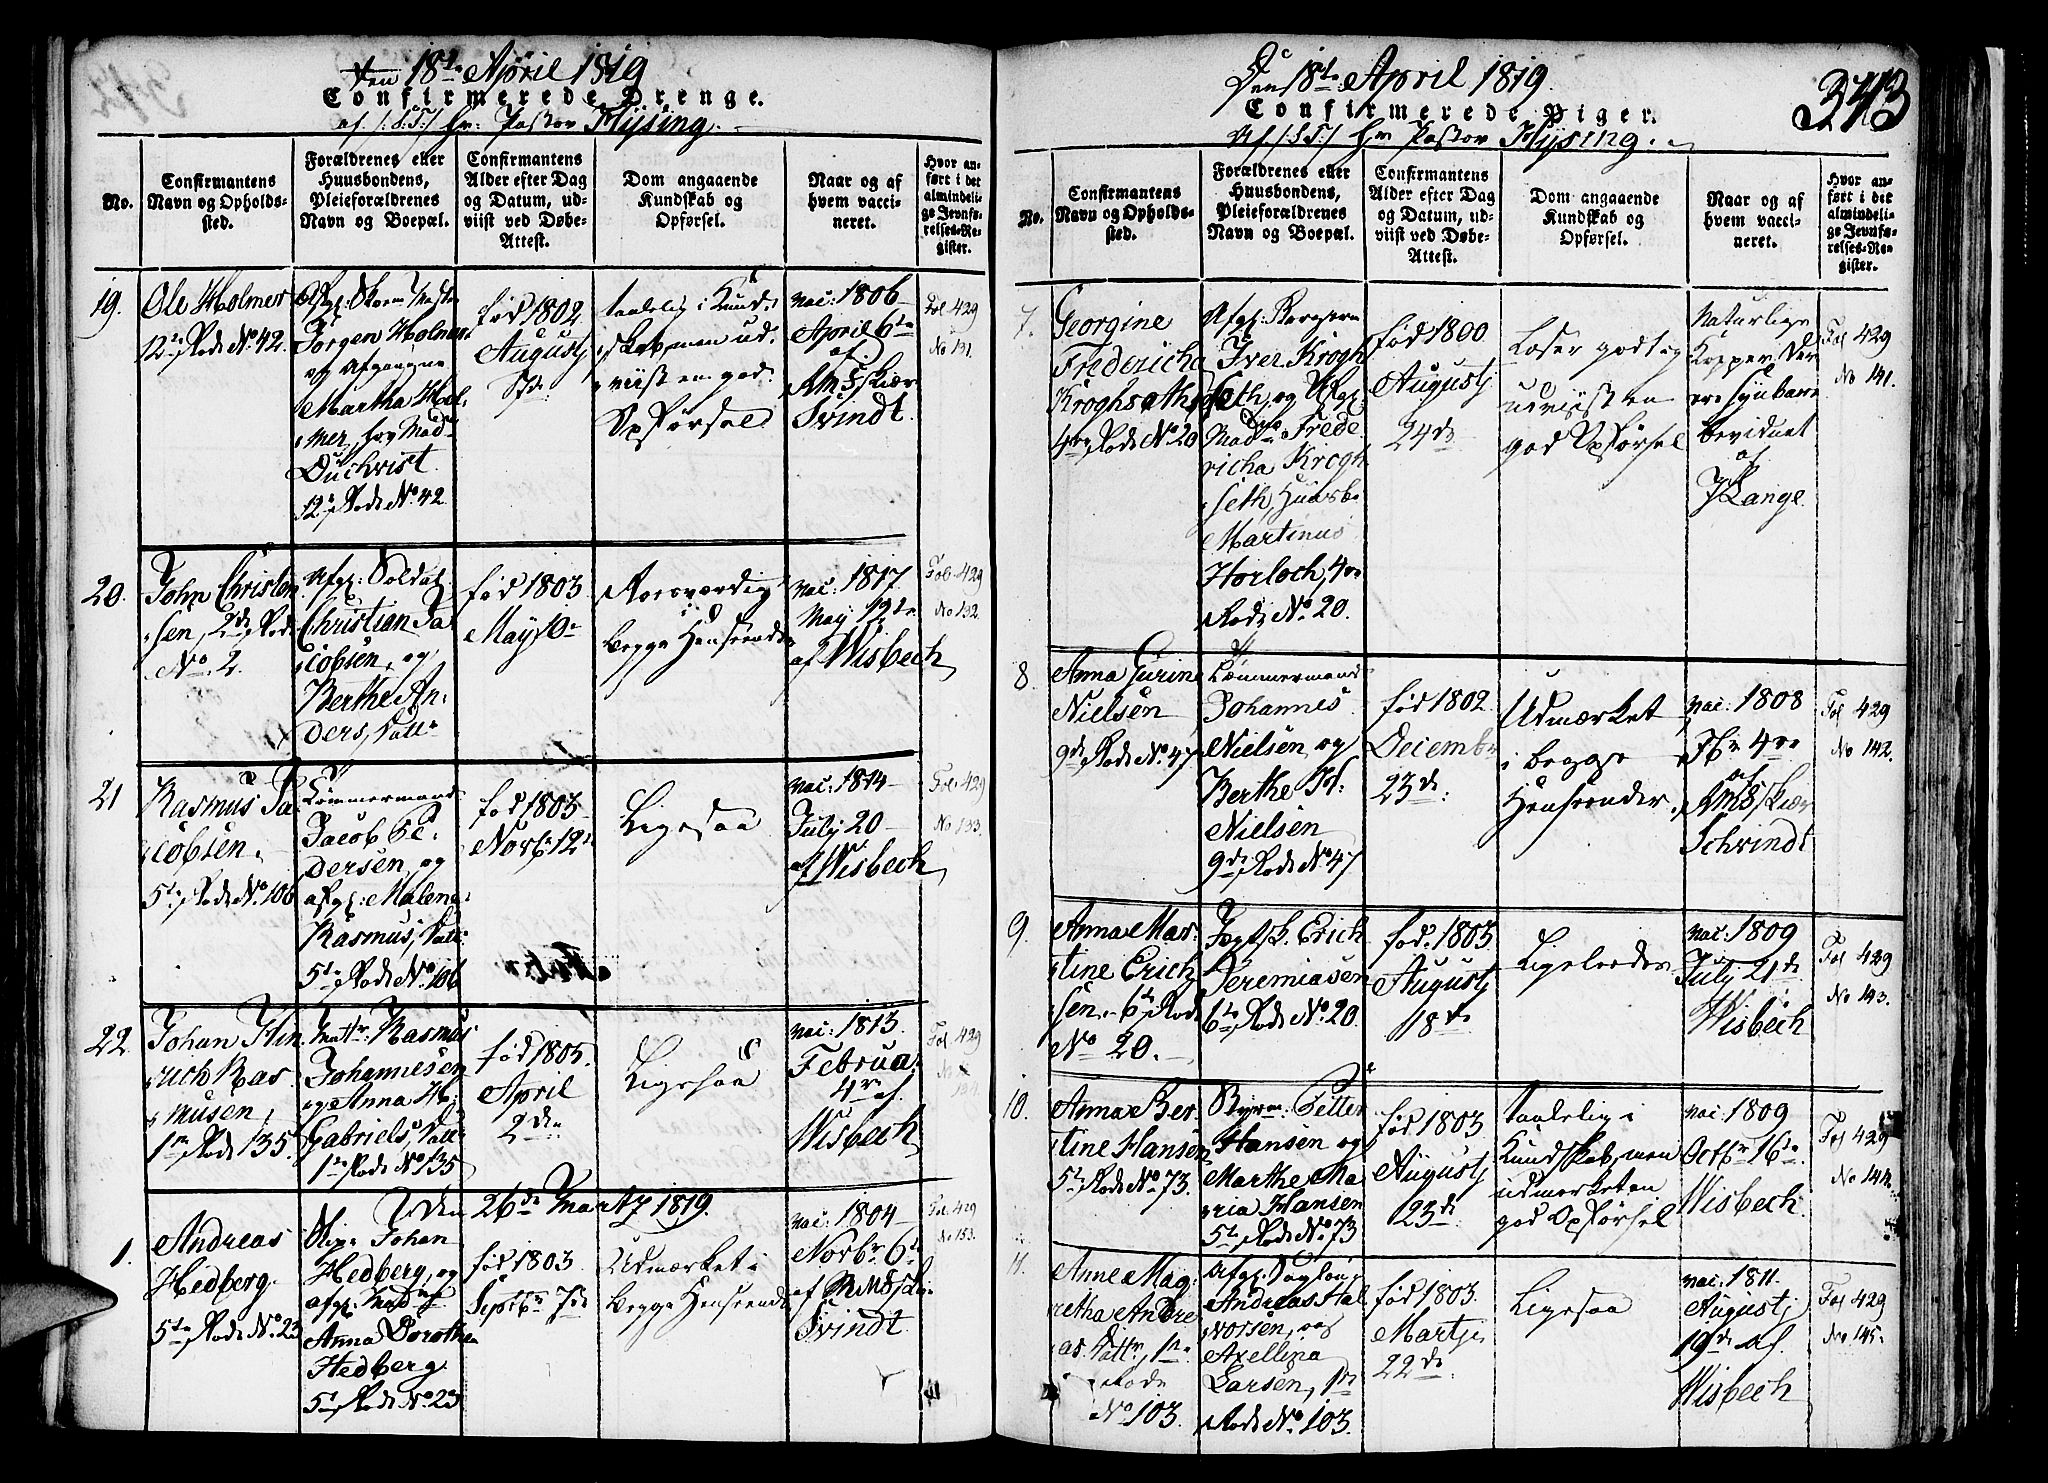 Den 18de April 1819
Confirmerede Drenge.
af /:S:T:/ Hr: Pastor Flysing.
No.
Confirmantens
Navn og Opholds-
sted.
Forældrenes eller
Huusbondens,
Pleieforældrenes
Navn og Boepæl.
Confirmantens
Alder efter Dag
og Datum, ud-
viist ved Døbe-
Attest.
Dom angaaende
Kundskab og
Opførsel.
Naar og af
hvem vacci-
neret.
Hvor an-
ført i det
almindeli-
ge Jevnfø-
relses-Re-
gister.
19.
Ole Holmer
12te Rode No. 42.
Afgl:
Jørgen Holmer
og Afgangne
Martha Hol-
mer,
12te Rode No. 42.
født 1802
Augustj
5te
taalelig i Kund-
skab, men ud-
viist en god
Opførsel
vac: 1806
April 6te
af
Svindt.
Fol 429
No 131.
20.
John Christen
sen, 2den Rode
No. 2.
Afgl: Soldat
Christian Ja
cobsen, og
Berthe An-
ders, Datt:
født 1803
May 10de
Roesværdig
i
begge Henseender
vac: 1817.
May 12te
af Wisbech
Fol. 429
No 132.
21
Rasmus Ja
cobsen.
5te Rode No. 106
Tømmermand
Jacob Pe-
dersen, og
afgl: Malena
Rasmus, Datt:
5te Rode No. 106
født 1803
Novbr 12te
Ligesaa
vac: 1814
July 20
af Wisbech
Fol: 429
No 133.
22.
Johan Hin
rich Ras
musen,
1ste Rode 135.
Matr. Rasmus
Johannesen
og Anna H:
Gabriels, Datt:
1ste Rode No 135
født 1805.
April
2den
Ligesaa
vac: 1813.
Februa
4de af
Wisbech
Fol. 429
No 134
Den 26de Martz 1819.
1.
Andreas
Hedberg.
5te Rode No. 23
Johan
Hedberg, og
afgl: Mad
Anna Dorothea
Hedberg
5te Rode No. 23
født 1803
Septbr 7de
Udmærket i
begge Henseender
vac: 1804
Novbr 6te
af
Svindt.
Fol. 429
No 153.
Den 18de April 1819.
343
Confirmerede Piger.
Af /:S:T:/ Hr Pastor Flysing.
No.
Confirmantens
Navn og Opholds-
sted.
Forældrenes eller
Huusbondens,
Pleieforældrenes
Navn og Boepæl.
Confirmantens
Alder efter Dag
og Datum, ud-
viist ved Døbe-
Attest.
Dom angaaende
Kundskab og
Opførsel.
Naar og af
hvem vacci-
neret.
Hvor an-
ført i det
almindeli-
ge Jevnfø-
relses-Re-
gister.
7.
Georgine
Fredericha
Kroghseth
4de Rode No 20
Afgl: Borgeren
Iver Krogh
seth, og Afgl:
Made Frede
richa Krogh
seth, Huusb.
Martinus
Horloch, 4de
Rode No. 20.
født 1800.
Augustj
24de
Læser godt og
udviist en
god Opførsel
Naturlige
Kopper, der
ere Synbare
bevidnet
af
J Lange
Fol 429
No 141.
8.
Anna Gurine
Nielsen
9de Rode No. 47
Tømmermand
Johannes
Nielsen og
Berthe H.
Nielsen
9de Rode No. 47
født 1802.
Decembr
23de:
Udmærket
i begge
Henseender.
vac: 1808
7br 4de
af
Schvindt
Fol 429
No 142.
9.
Anna Mar-
tine Erich
sen, 6te Rode
No 20.
Jægtsk. Erich
Jeremiasen
6te Rode No. 20.
fød. 1803
Augustj
18de
Ligeledes
vac: 1809
July 21de
Wisbech
Fol 429
No 143.
10.
Anna Ber
tine Hansen
5te Rode No. 73.
Petter
Hansen og
Marthe Ma
ria Hansen
5te Rode No. 73
født 1803
Augustj
23de
taalelig i
Kundskab, men
udmerket en
god Opførsel
vac: 1809
Octbr 16te
Wisbech.
Fol 429
No 144.
11.
Anne Mag-
retha Andre
as. Dattr, 1ste
Rode
No 103.
Afgl:
Andreas Hal
vorsen, og
Axellina
Larsen, 1ste
Rode No. 103.
født 1803.
Martj
22de
Ligesaa
vac: 1811.
Augustj
19de af.
Wisbech
Fol 429
No. 145.